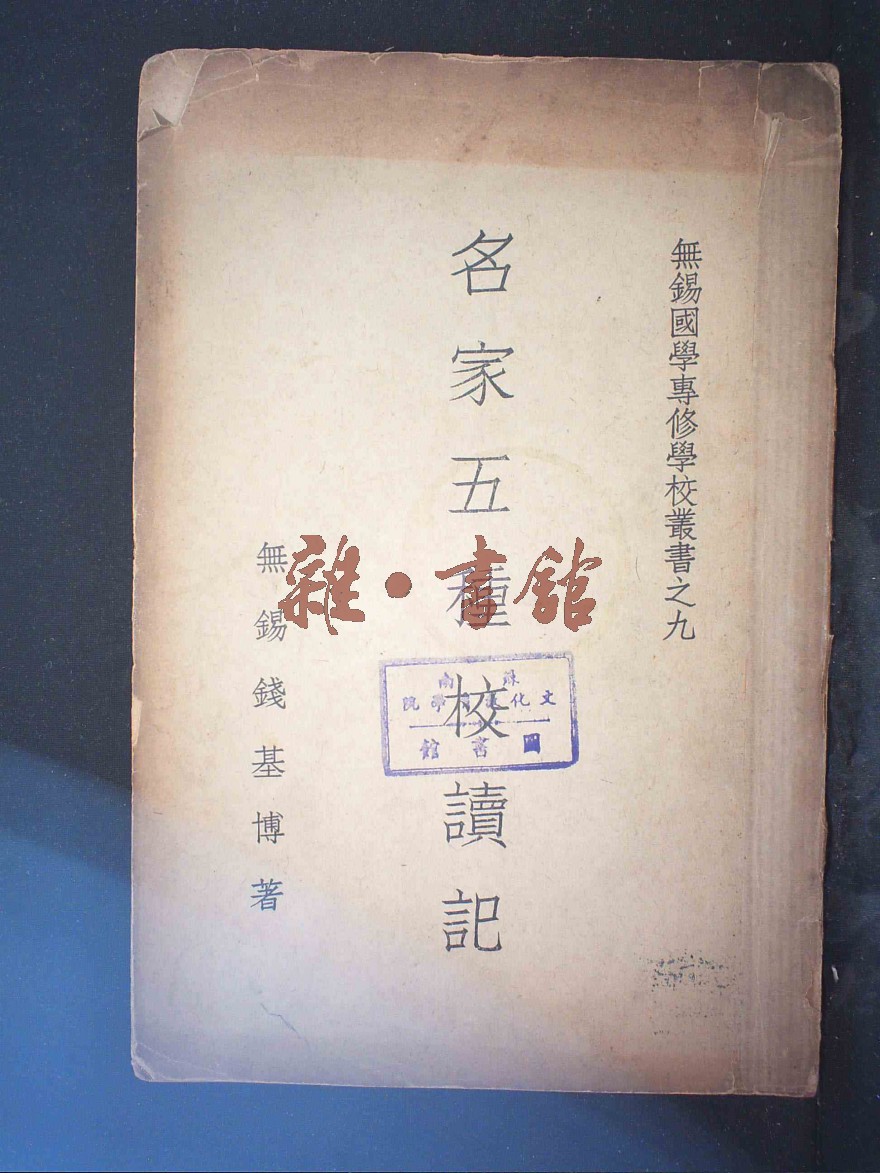 無錫國學專修學校叢書之九
名家五種校讀記
無錫錢基博著
雜·書館
蘇南
文化教育學院
圖書館